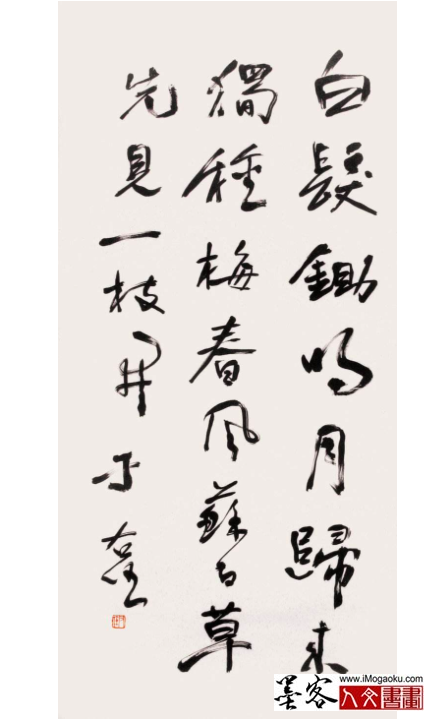 白髮鋤明月歸來
獨種梅春風蘇百草
先見一枝開 于右任
墨客
www.iMogaoku.com
人文書畫